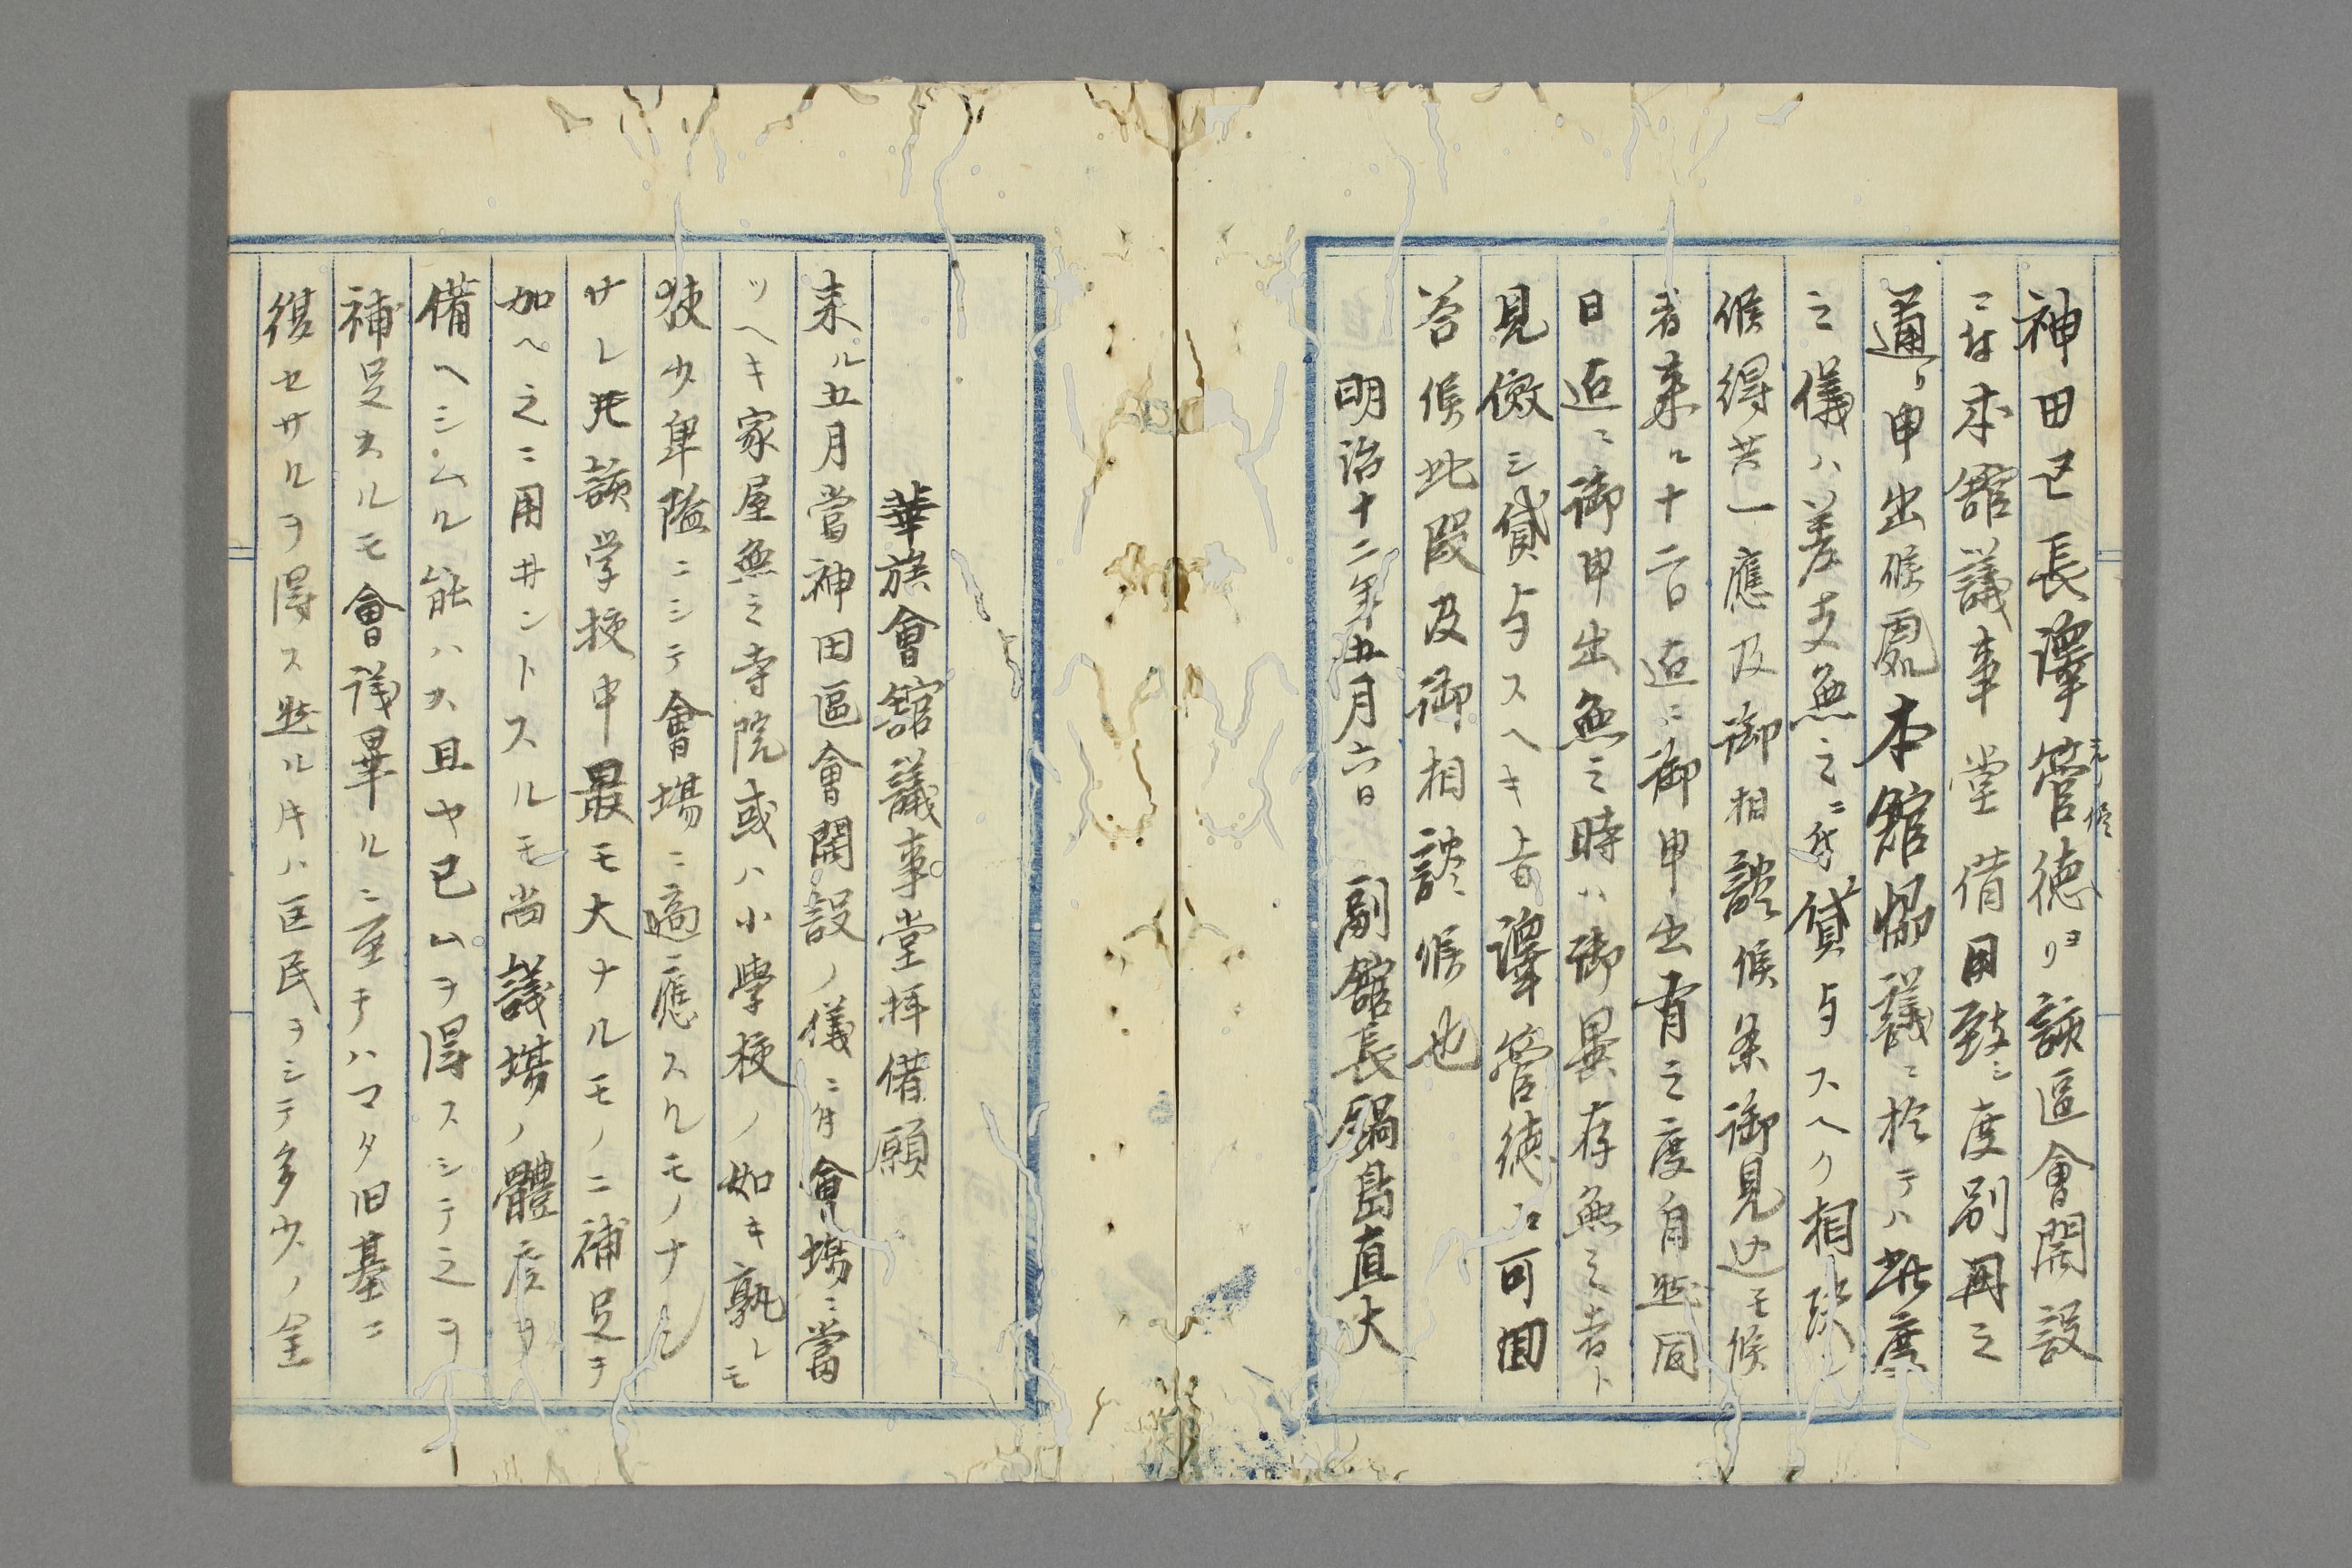 神田区長澤簡徳ヨリ該區會開設
ニ付本舘議事堂借用致シ度別冊之
通リ申出候處本舘協議ニ於テハ此度
之儀ハ差支無之ニ付貸与スヘク相決シ
候得共一應及御相談候条御見込モ候
者来ル十二日迠ニ御申出有之度自然同
日迠ニ御申出無之時ハ御異存無之者ト
見做シ貸与スヘキ旨澤簡徳ヘ可回
答候此段及御相談候也
明治十二年五月六日 副舘長鍋島直大
華族會舘議事堂拝借願
来ル五月當神田區會開設ノ儀ニ付會塲ニ當
ツヘキ家屋無之寺院或ハ小學校ノ如キ孰レモ
狭少卑隘ニシテ會塲ニ適應スルモノナシ
サレ𪜈該学校中最モ大ナルモノニ補足ヲ
加ヘ之ニ用井ントスルモ尚議塲ノ體度ヲ
備ヘシムル能ハス且ヤ已ムヲ得スシテ之ヲ
補足スルモ會議畢ルニ至テハマタ旧基ニ
復セサルヲ得ス然ルキハ区民ヲシテ多少ノ金